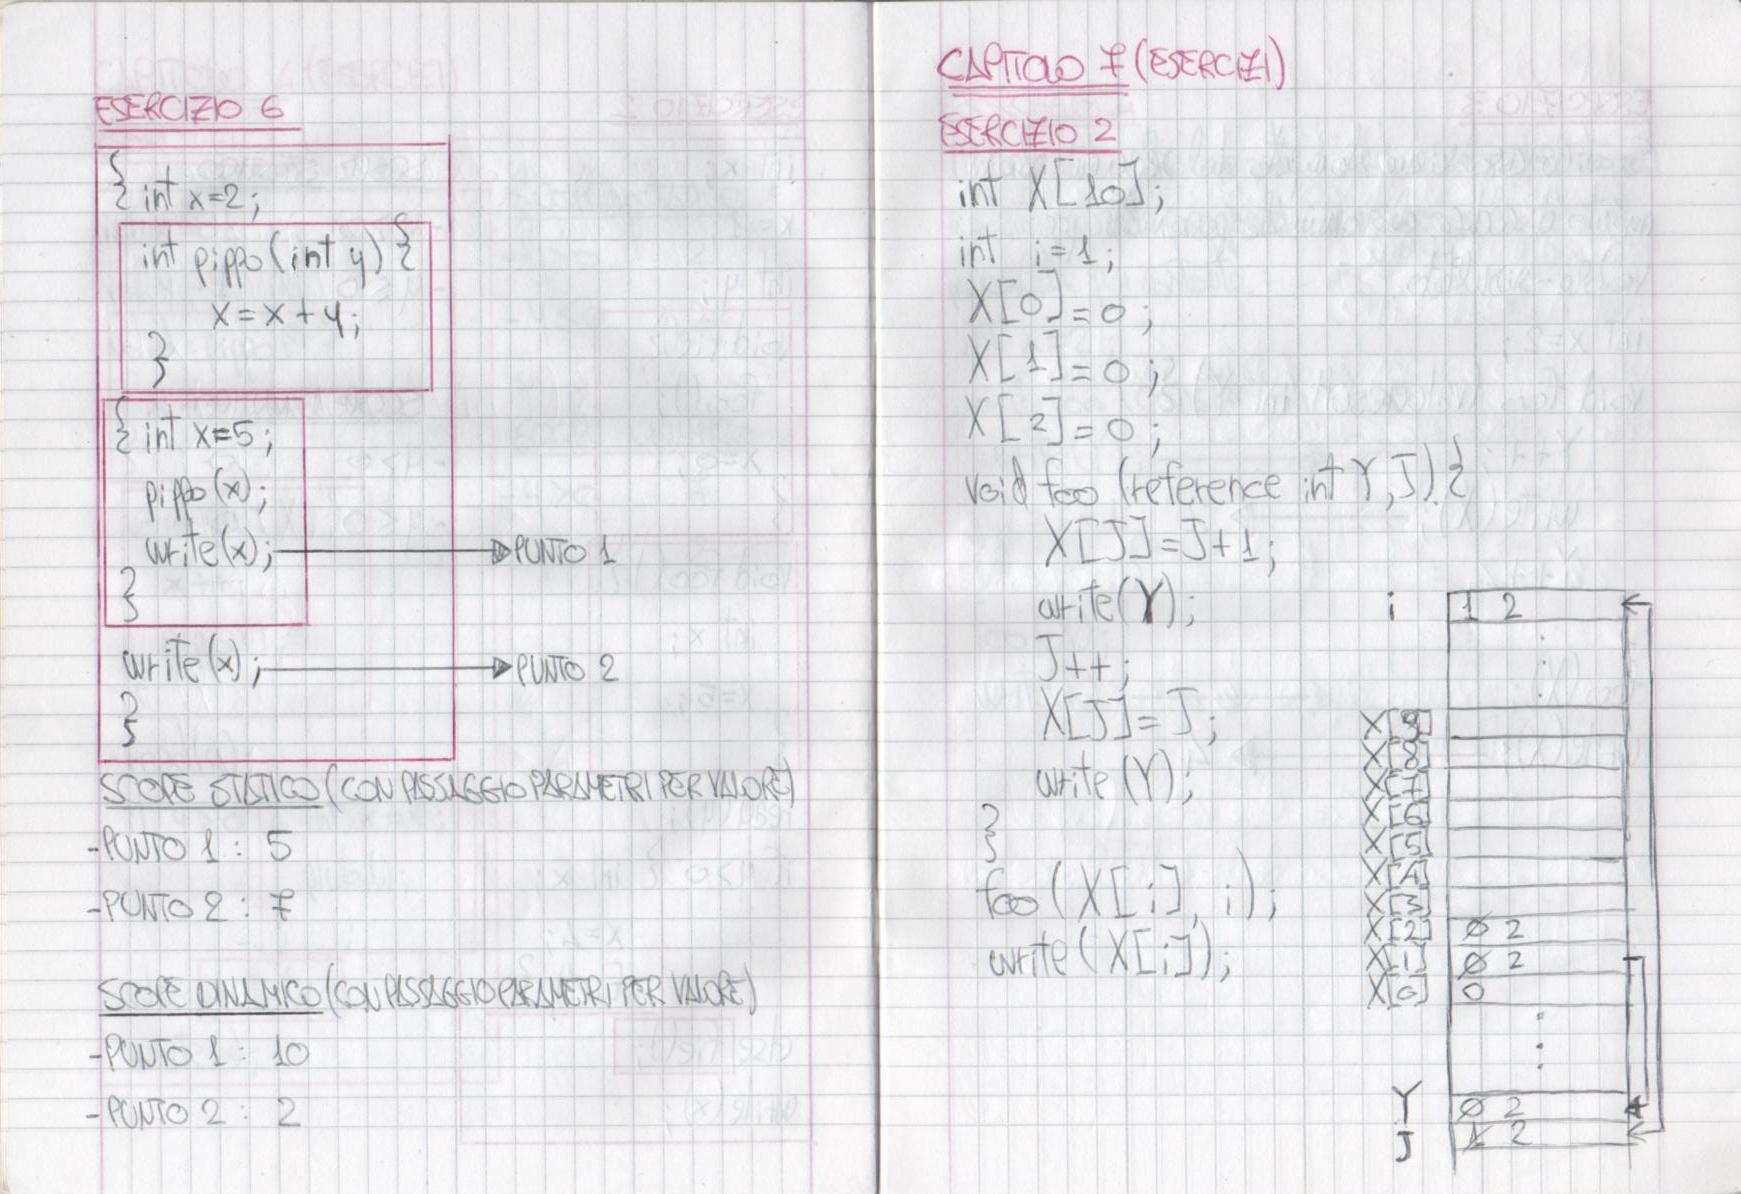 ESERCIZIO 6
{ int x=2;
int pippo(int y) {
x=x+y;
}
{ int x=5;
pippo(x);
write(x); PUNTO 1
}
write(x); PUNTO 2
}
SCOPE STATICO (CON PASSAGGIO PARAMETRI PER VALORE)
-PUNTO 1: 5
-PUNTO 2: 7
SCOPE DINAMICO (CON PASSAGGIO PARAMETRI PER VALORE)
-PUNTO 1: 10
-PUNTO 2: 2
CAPITOLO 7 (ESERCIZI)
ESERCIZIO 2
int X[10];
int i=1;
X[0]=0;
X[1]=0;
X[2]=0;
void foo (reference int Y,J) {
X[J]=J+1;
write(Y);
J++;
X[J]=J;
write(Y);
}
foo(X[i], i);
write(X[i]);
i 1 2
X[9]
X[8]
X[7]
X[6]
X[5]
X[4]
X[3]
X[2] 0 2
X[1] 0 2
X[0] 0
Y 0 2
J 1 2